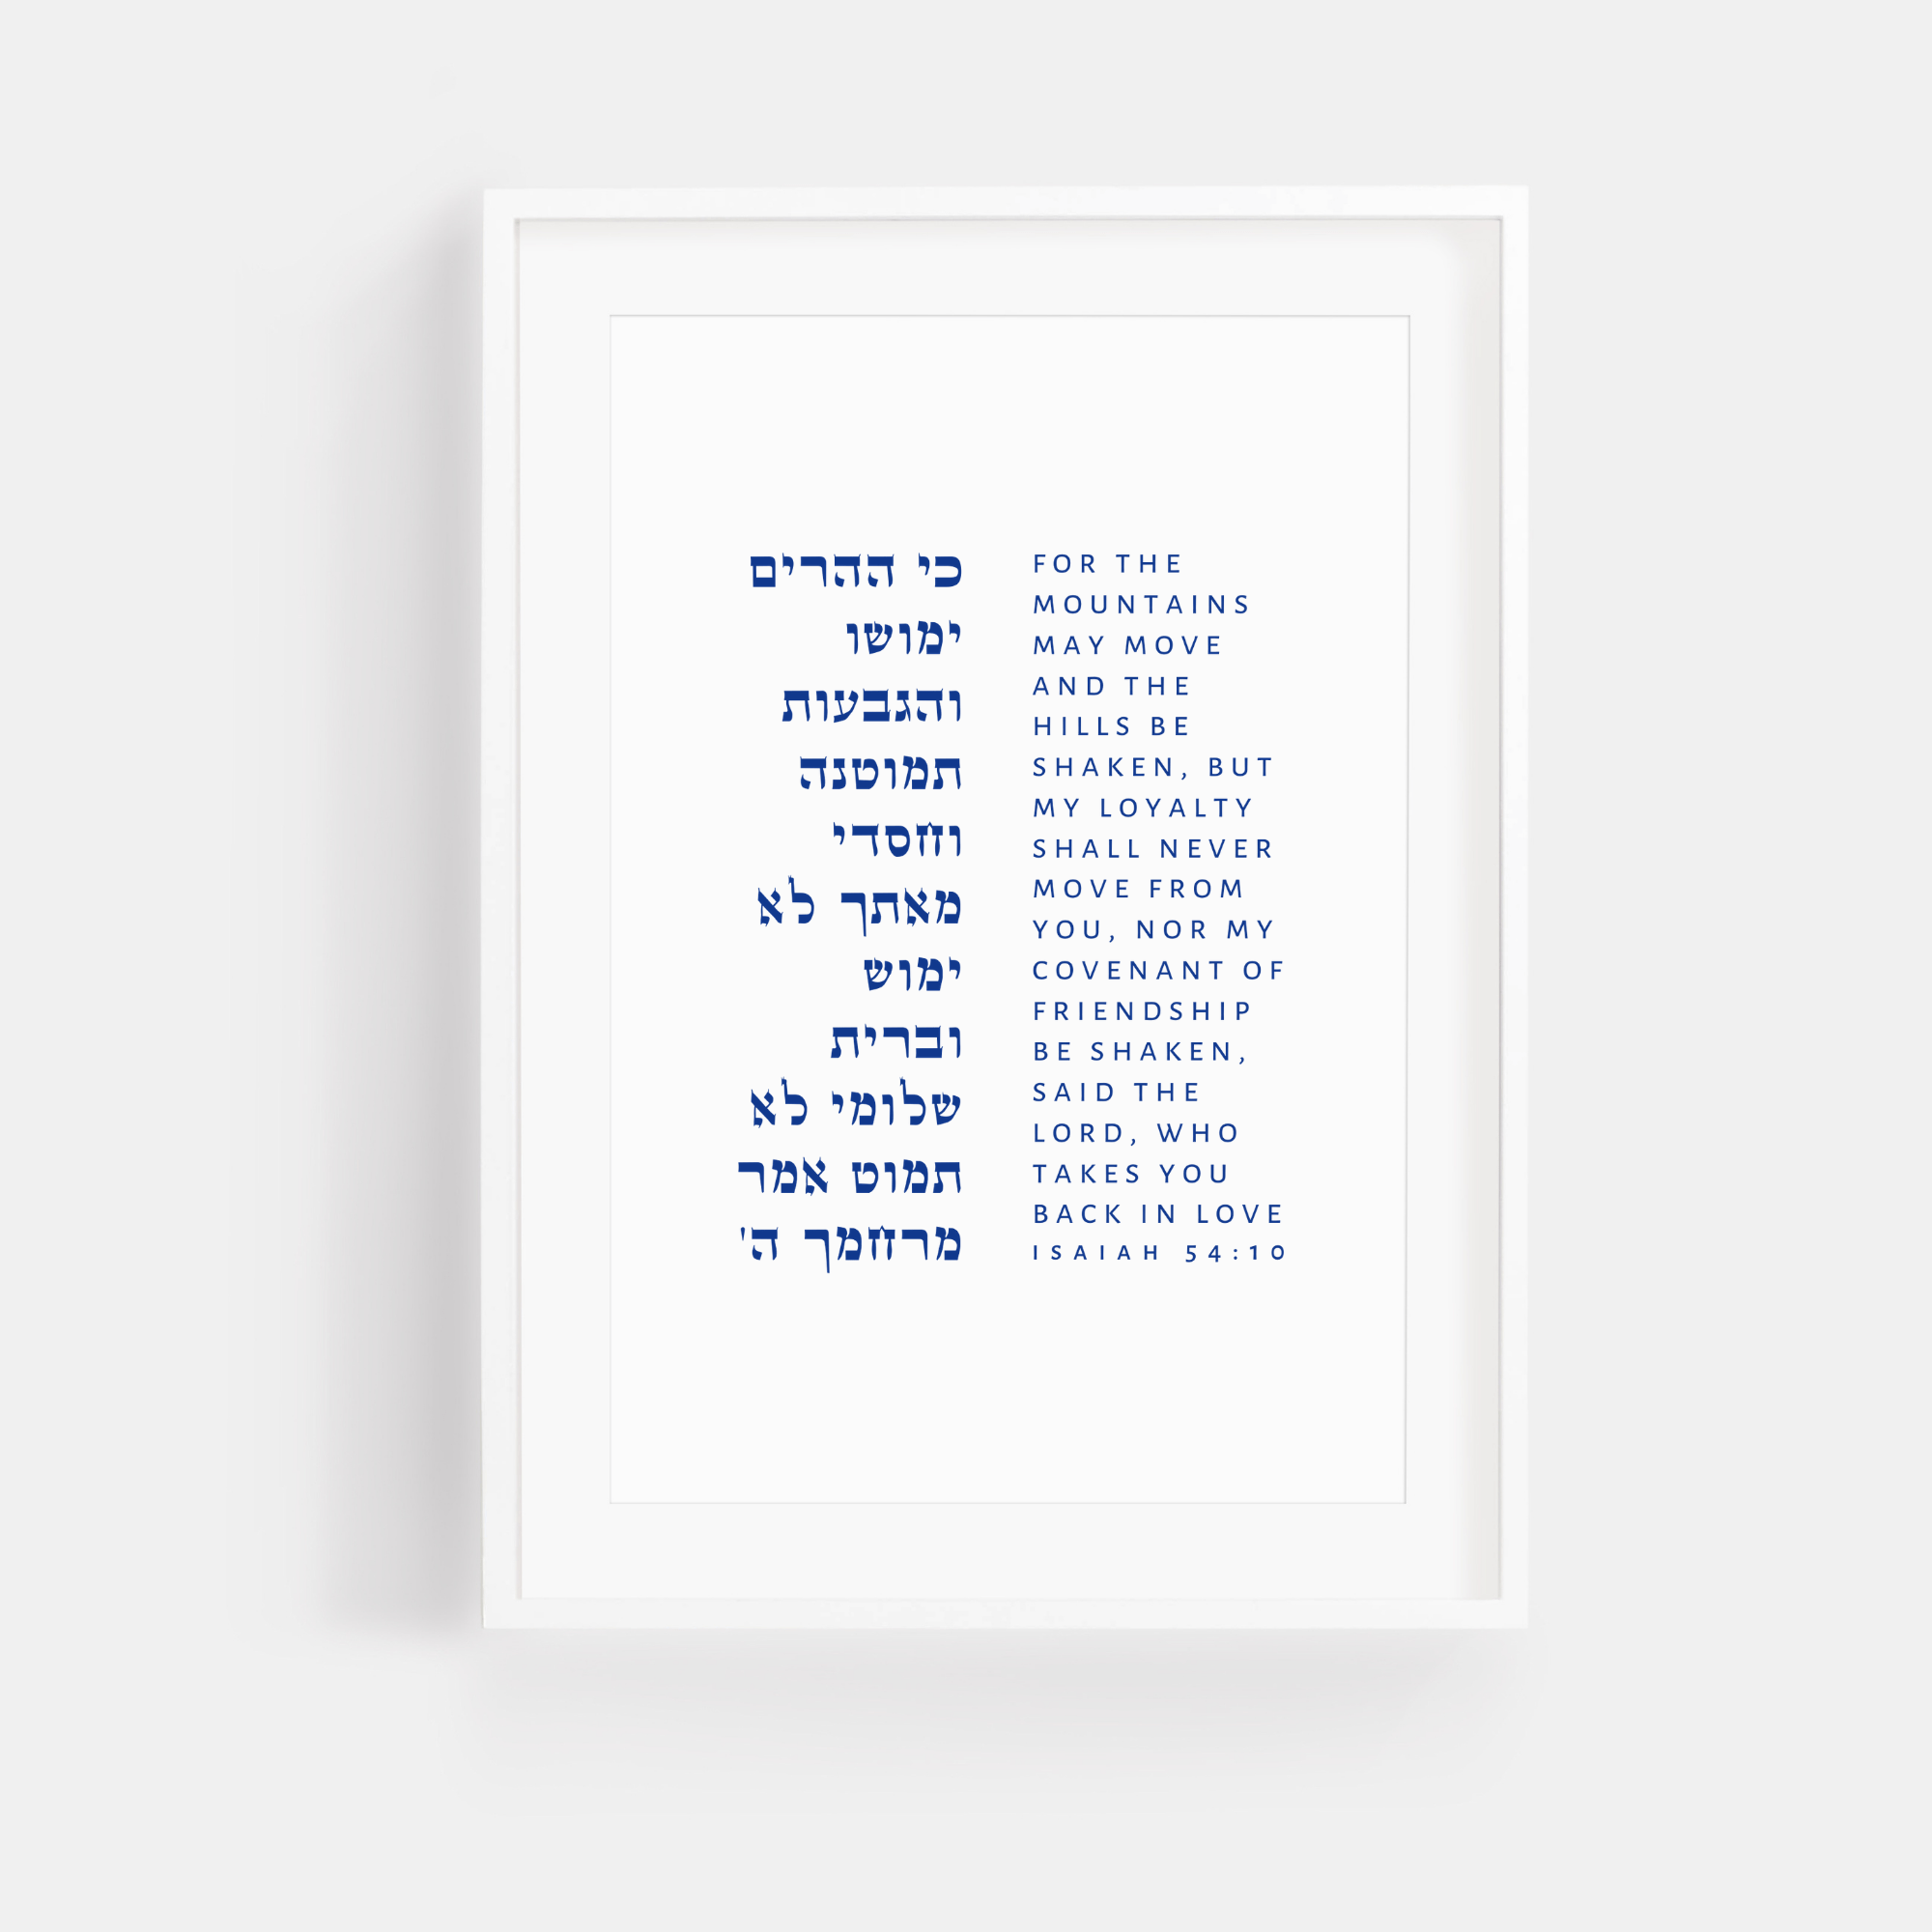 כי ההרים
ימושו
והגבעות
תמוטנה
וחסדי
מאתך לא
ימוש
וברית
שלומי לא
תמוט אמר
מרחמך ה'
FOR THE
MOUNTAINS
MAY MOVE
AND THE
HILLS BE
SHAKEN, BUT
MY LOYALTY
SHALL NEVER
MOVE FROM
YOU, NOR MY
COVENANT OF
FRIENDSHIP
BE SHAKEN,
SAID THE
LORD, WHO
TAKES YOU
BACK IN LOVE
ISAIAH 54:10